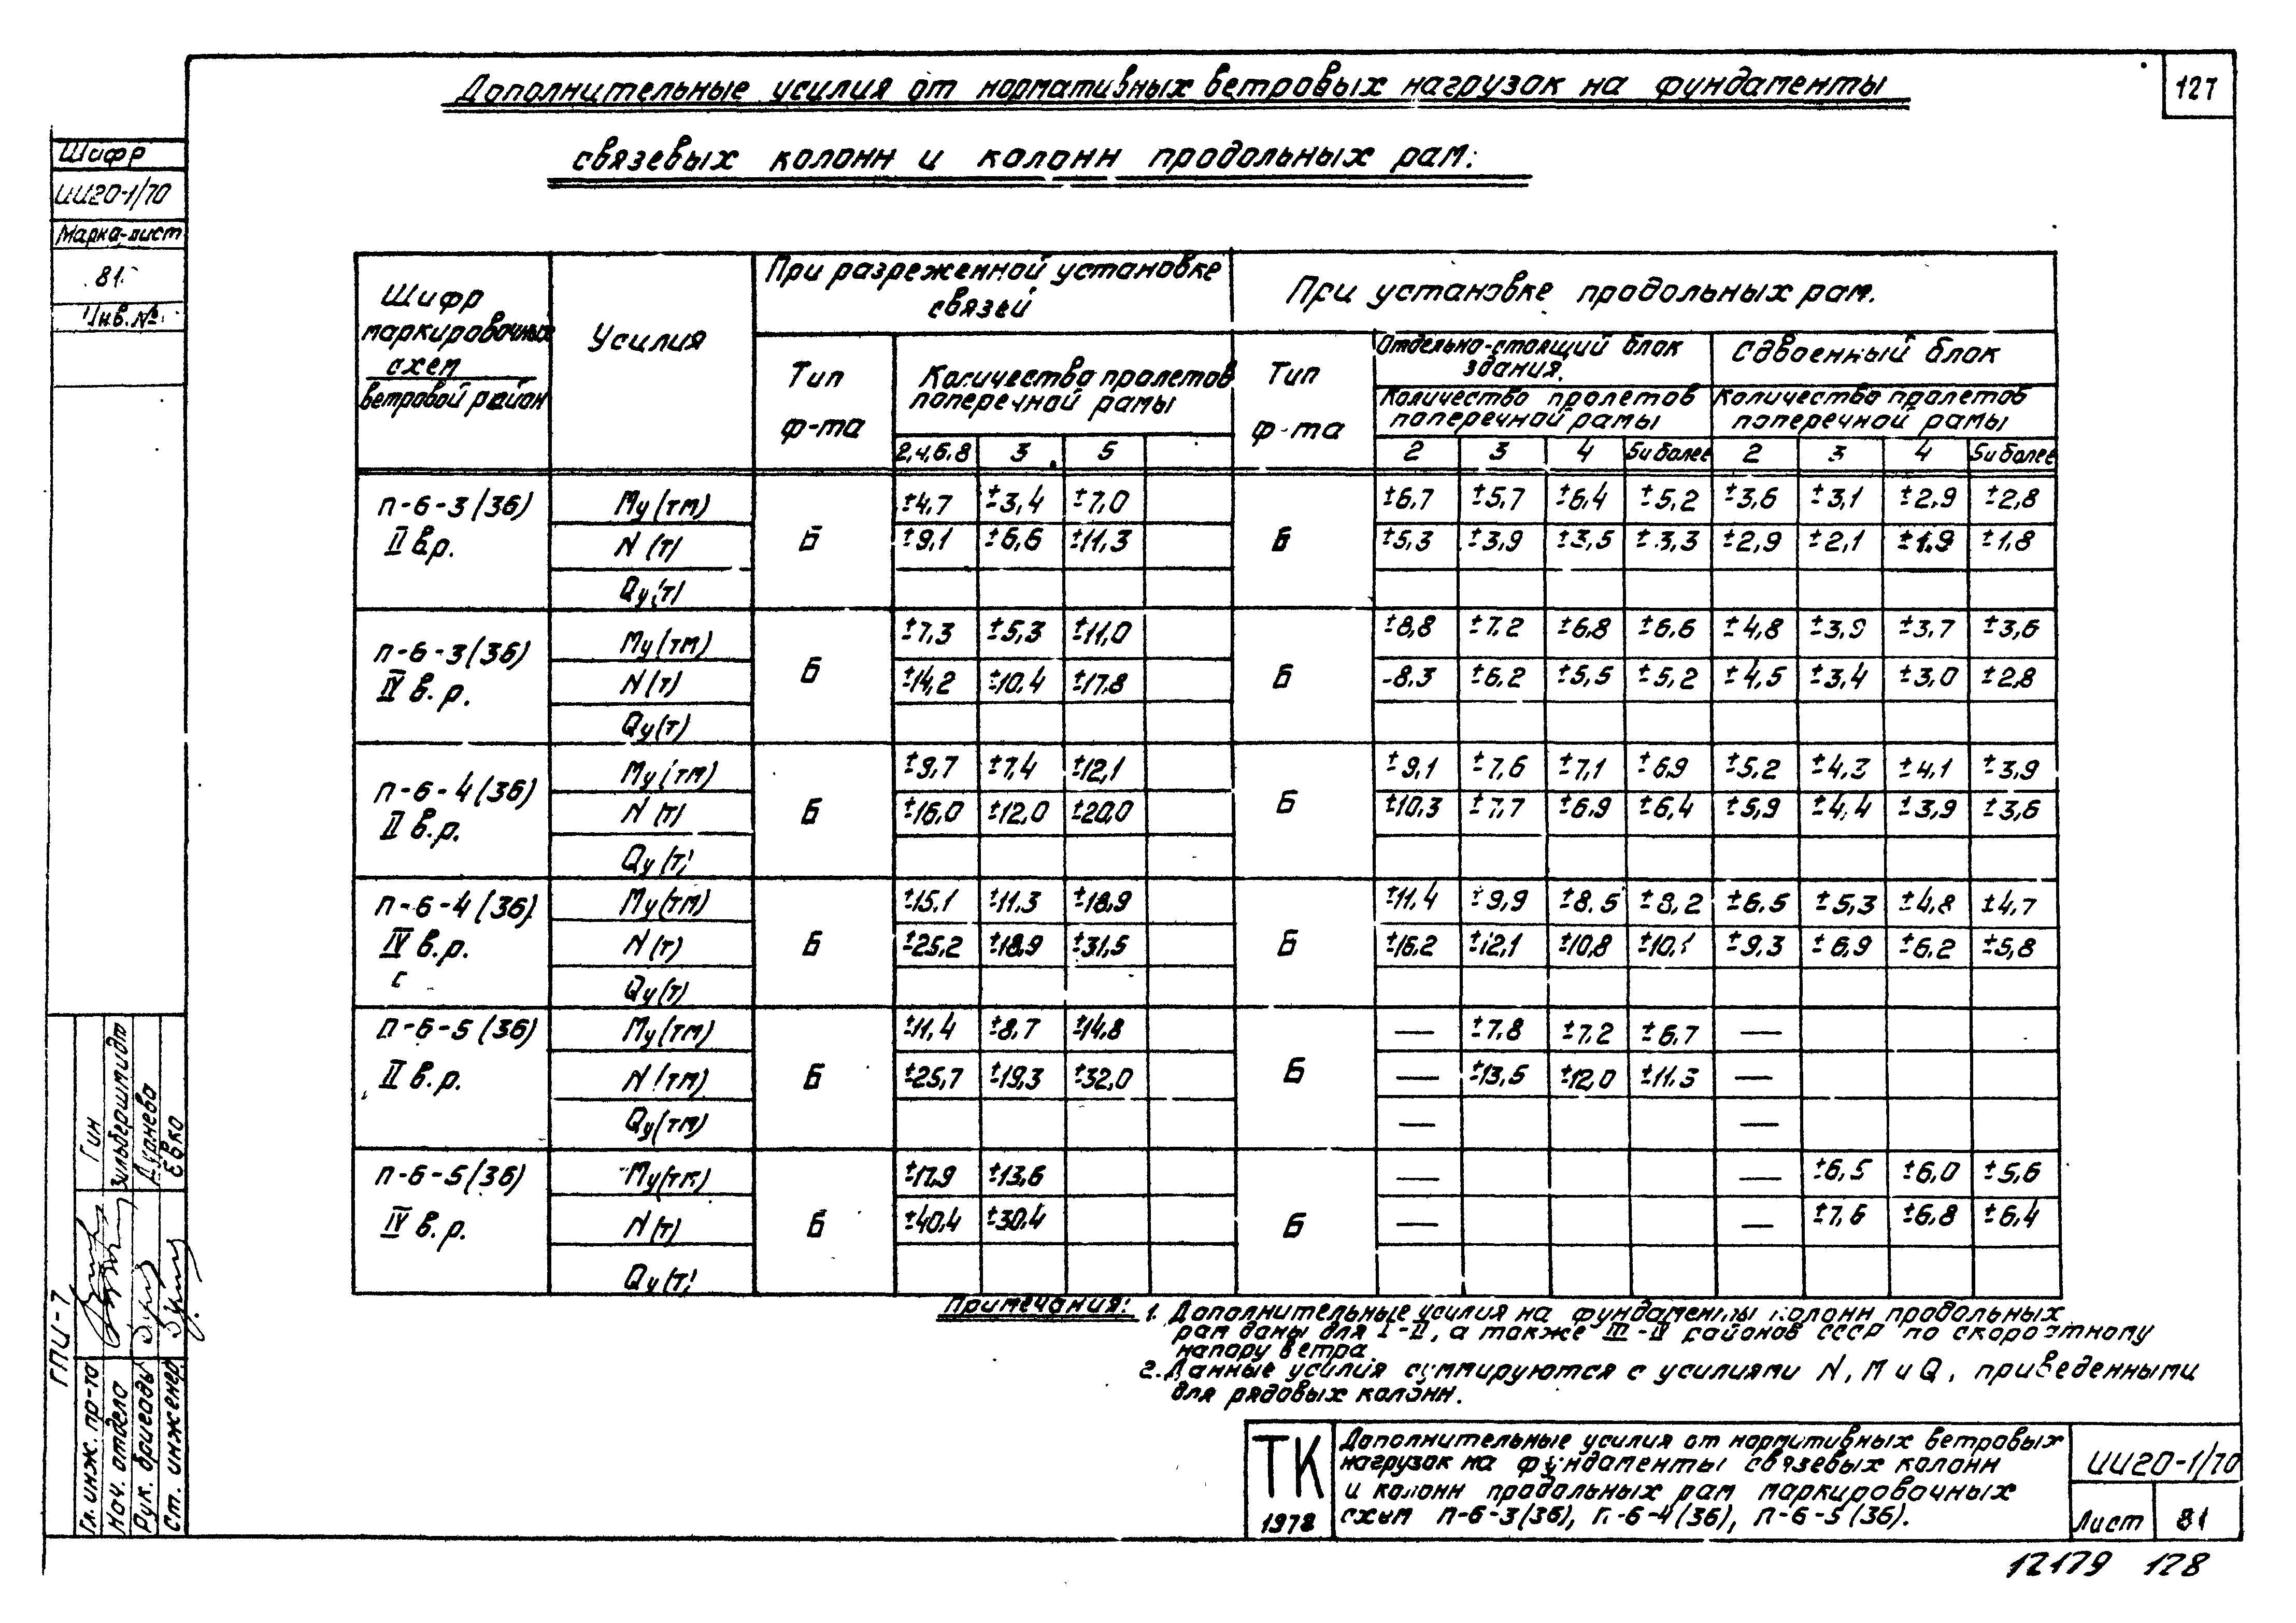 127
Дополнительные усилия от нормативных ветровых нагрузок на фундаменты
связевых колонн и колонн продольных рам.
Шифр
ИИ20-1/70
Марка-лист
81
Инв. №
Шифр маркировочных схем / ветровой район
Усилия
При разреженной установке связей
При установке продольных рам.
Тип ф-та
Количество пролетов поперечной рамы
Тип ф-та
Отдельно-стоящий блок здания.
Сдвоенный блок
Количество пролетов поперечной рамы
Количество пролетов поперечной рамы
2,4,6,8 3 5 2 3 4 5и более 2 3 4 5и более
п-6-3(36) II в.р. Б Б
Му(тм) ±4,7 ±3,4 ±7,0 ±6,7 ±5,7 ±6,4 ±5,2 ±3,6 ±3,1 ±2,9 ±2,8
N(т) ±9,1 ±6,6 ±11,3 ±5,3 ±3,9 ±3,5 ±3,3 ±2,9 ±2,1 ±1,9 ±1,8
Qу(т)
п-6-3(36) IV в.р. Б Б
Му(тм) ±7,3 ±5,3 ±11,0 ±8,8 ±7,2 ±6,8 ±6,6 ±4,8 ±3,9 ±3,7 ±3,6
N(т) ±14,2 ±10,4 ±17,8 -8,3 ±6,2 ±5,5 ±5,2 ±4,5 ±3,4 ±3,0 ±2,8
Qу(т)
п-6-4(36) II в.р. Б Б
Му(тм) ±9,7 ±7,4 ±12,1 ±9,1 ±7,6 ±7,1 ±6,9 ±5,2 ±4,3 ±4,1 ±3,9
N(т) ±16,0 ±12,0 ±20,0 ±10,3 ±7,7 ±6,9 ±6,4 ±5,9 ±4,4 ±3,9 ±3,6
Qу(т)
п-6-4(36) IV в.р. с Б Б
Му(тм) ±15,1 ±11,3 ±18,9 ±11,4 ±9,9 ±8,5 ±8,2 ±6,5 ±5,3 ±4,8 ±4,7
N(т) ±25,2 ±18,9 ±31,5 ±16,2 ±12,1 ±10,8 ±10,1 ±9,3 ±6,9 ±6,2 ±5,8
Qу(т)
п-6-5(36) II в.р. Б Б
Му(тм) ±11,4 ±8,7 ±14,8 — ±7,8 ±7,2 ±6,7 —
N(тм) ±25,7 ±19,3 ±32,0 — ±13,5 ±12,0 ±11,3 —
Qу(тм) — —
п-6-5(36) IV в.р. Б Б
Му(тм) ±17,9 ±13,6 — — ±6,5 ±6,0 ±5,6
N(т) ±40,4 ±30,4 — — ±7,6 ±6,8 ±6,4
Qу(т)
Примечания: 1. Дополнительные усилия на фундаменты колонн продольных
рам даны для I-II, а также III-IV районов СССР по скоростному
напору ветра.
2. Данные усилия суммируются с усилиями N, М и Q, приведенными
для рядовых колонн.
ГПИ-7
Гл. инж. пр-та Гин
Нач. отдела Зильберштидт
Рук. бригады Дурнева
Ст. инженер Евко
ТК
1978
Дополнительные усилия от нормативных ветровых
нагрузок на фундаменты связевых колонн
и колонн продольных рам маркировочных
схем п-6-3(36), п-6-4(36), п-6-5(36).
ИИ20-1/70
Лист 81
12179 128